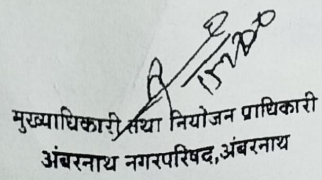 मुख्याधिकारी तथा नियोजन प्राधिकारी
अंबरनाथ नगरपरिषद,अंबरनाथ